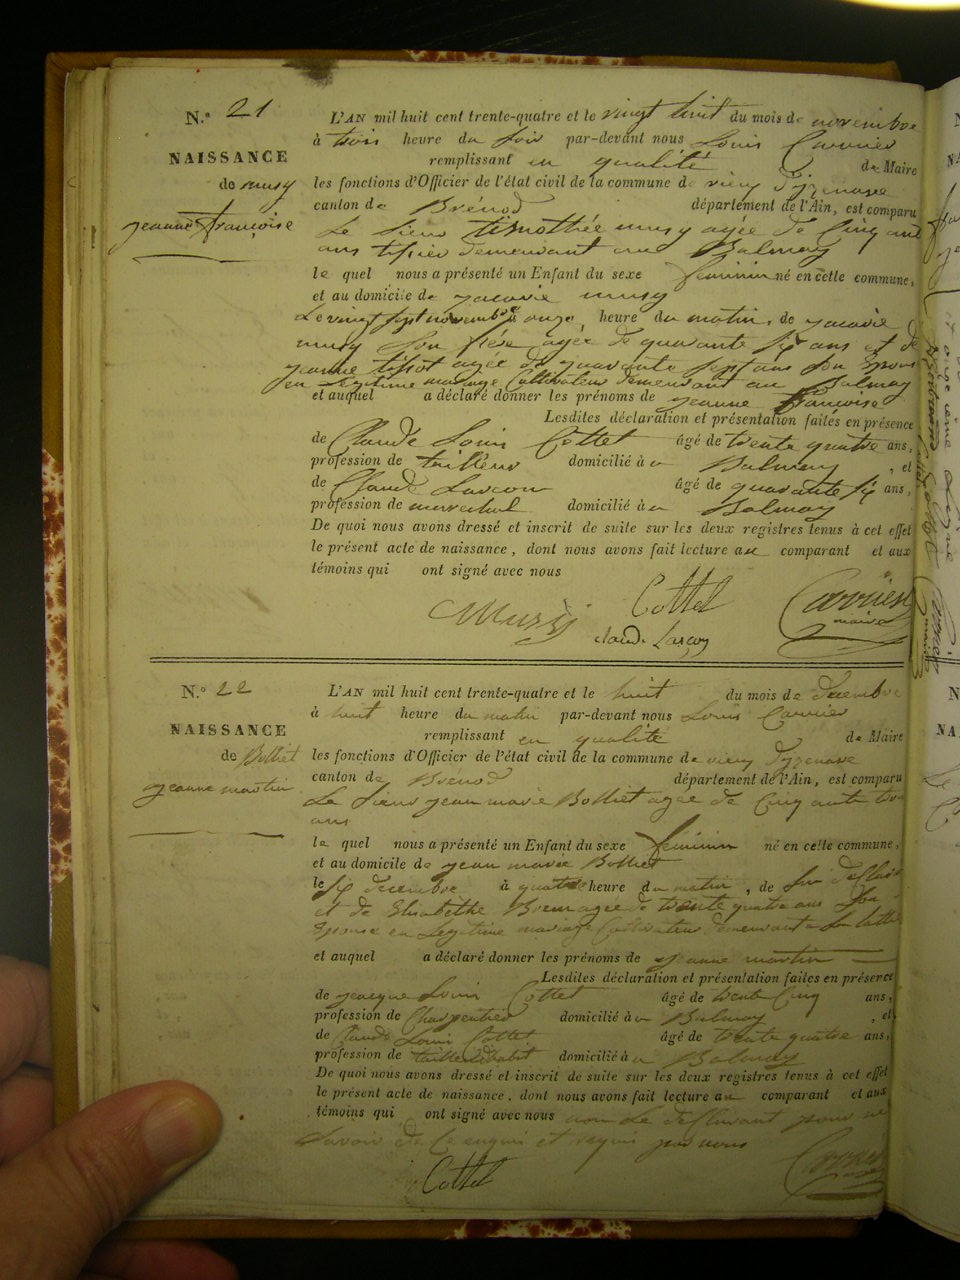 N.° 21
NAISSANCE
de musy
jeanne françoise
L'AN mil huit cent trente-quatre et le vingt huit du mois de novembre
à trois heure du soir par-devant nous Louis Carrier
remplissant en qualité de Maire
les fonctions d'Officier de l'état civil de la commune de vieu d'izenave
canton de Brénod département de l'Ain, est comparu
Le Sieur timothée musy agée de Cinq ante
ans demeurant au Balmay
le quel nous a présenté un Enfant du sexe feminin né en cette commune,
et au domicile de zacarie musy
Le vingt sept novembre à onze heure du matin, de zacarie
musy Son frère agée de quarante six ans et de
jeanne tissot agée de quarante sept ans Son Epouse
en Legitime mariage Cultivateur demeurant au Balmay
et auquel a déclaré donner les prénoms de jeanne françoise
Lesdites déclaration et présentation faites en présence
de Claude Louis Cottet âgé de trente quatre ans,
profession de tailleur domicilié à u Balmay, et
de Claude Lascour âgé de quarante six ans,
profession de marechal domicilié à u Balmay
De quoi nous avons dressé et inscrit de suite sur les deux registres tenus à cet effet
le présent acte de naissance, dont nous avons fait lecture au comparant et aux
témoins qui ont signé avec nous
Musy Cottet Carrier
maire
claude
N.° 22
NAISSANCE
de Bolliet
jeanne martin
L'AN mil huit cent trente-quatre et le huit du mois de decembre
à huit heure du matin par-devant nous Louis Carrier
remplissant en qualité de Maire
les fonctions d'Officier de l'état civil de la commune de vieu d'izenave
canton de Brenod département de l'Ain, est comparu
Le Sieur jean marie Bolliet agée de Cinq ante trois
ans
le quel nous a présenté un Enfant du sexe feminin né en cette commune,
et au domicile de jean marie Bolliet
le six decembre à quatre heure du matin, de
et de Elisabethe agee de trente quatre ans Son
Epouse en Legitime mariage Cultivateur demeurant a
et auquel a déclaré donner les prénoms de jeanne martin
Lesdites déclaration et présentation faites en présence
de jacque Louis Cottet âgé de trente Cinq ans,
profession de Charpentier domicilié à u Balmay, et
de Claude Louis Cottet âgé de trente quatre ans,
profession de tailleur dhabit domicilié à u Balmay
De quoi nous avons dressé et inscrit de suite sur les deux registres tenus à cet effet
le présent acte de naissance, dont nous avons fait lecture au comparant et aux
témoins qui ont signé avec nous non Le déclarant pour ne
Savoir de Ce enquis et requis par nous
Cottet Carrier